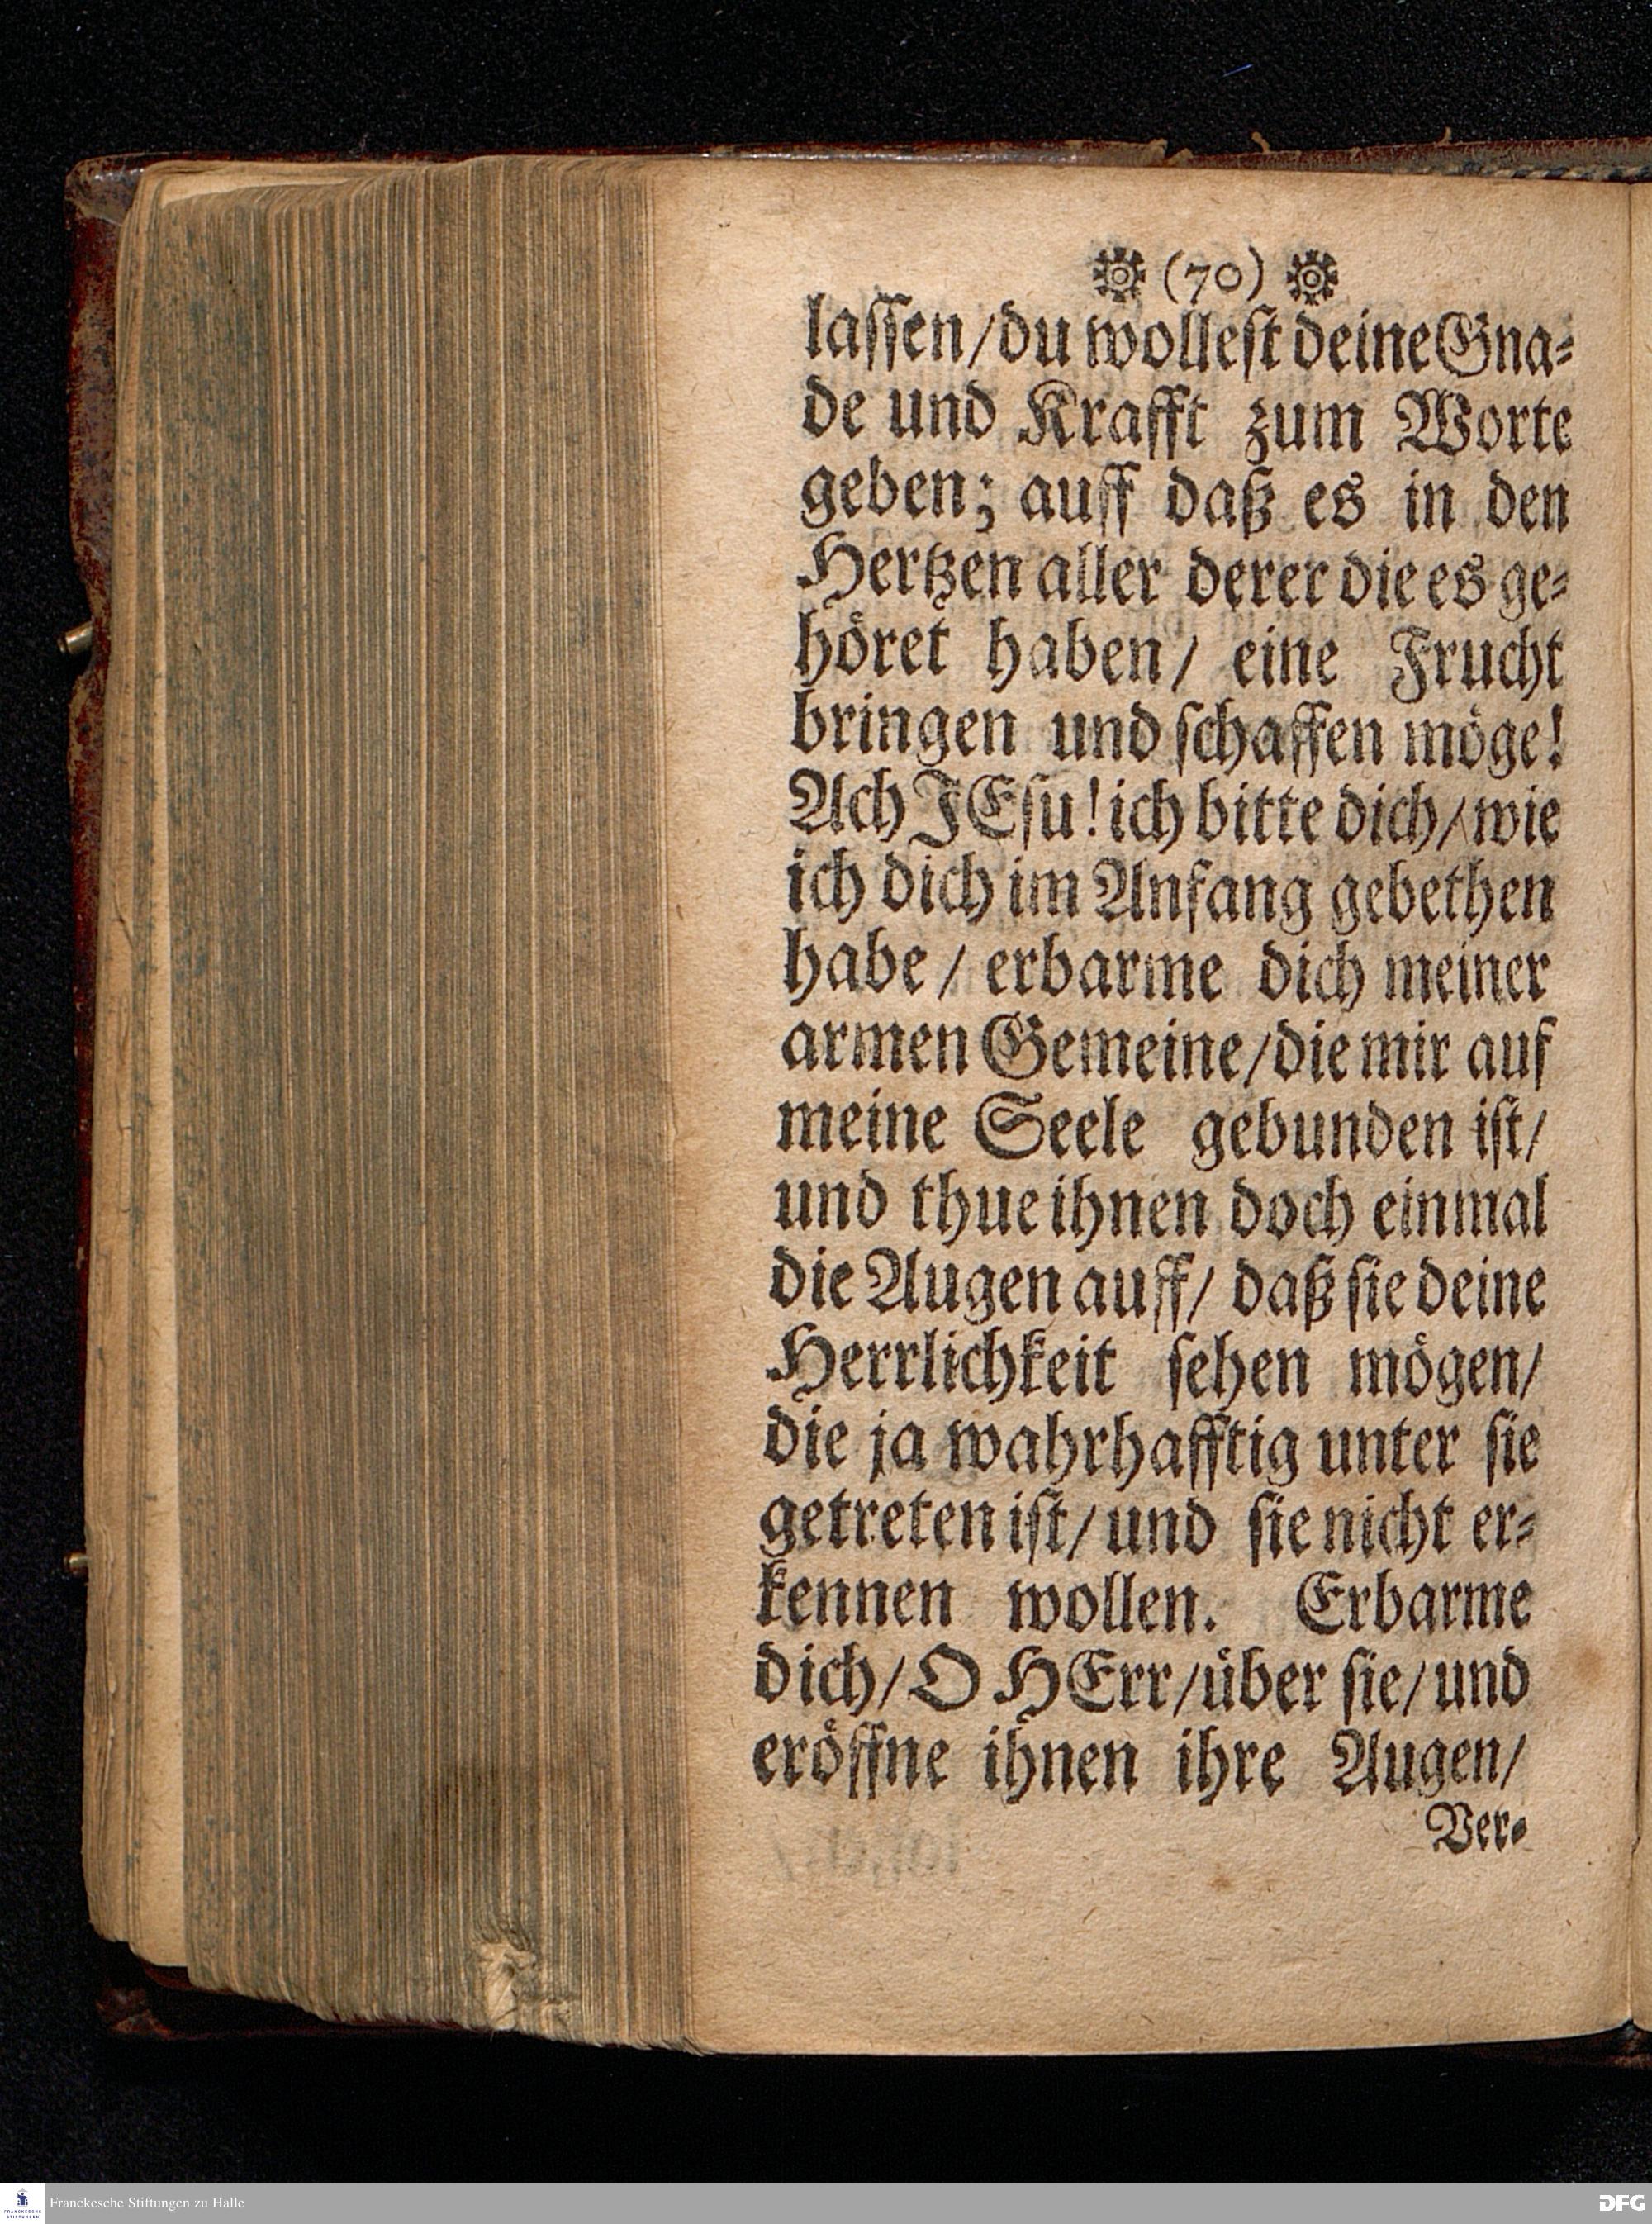 (70)
lassen/du wollest deine Gna-
de und Krafft zum Worte
geben; auff daß es in den
Hertzen aller derer die es ge-
höret haben/ eine Frucht
bringen und schaffen möge!
Ach JEsu! ich bitte dich/ wie
ich dich im Anfang gebethen
habe/ erbarme dich meiner
armen Gemeine/die mir auf
meine Seele gebunden ist/
und thue ihnen doch einmal
die Augen auff/ daß sie deine
Herrlichkeit sehen mögen/
die ja wahrhafftig unter sie
getreten ist/ und sie nicht er-
kennen wollen. Erbarme
dich/ O HErr/über sie/ und
eröffne ihnen ihre Augen/
Ver-
FRANCKESCHE
STIFTUNGEN
Franckesche Stiftungen zu Halle
DFG